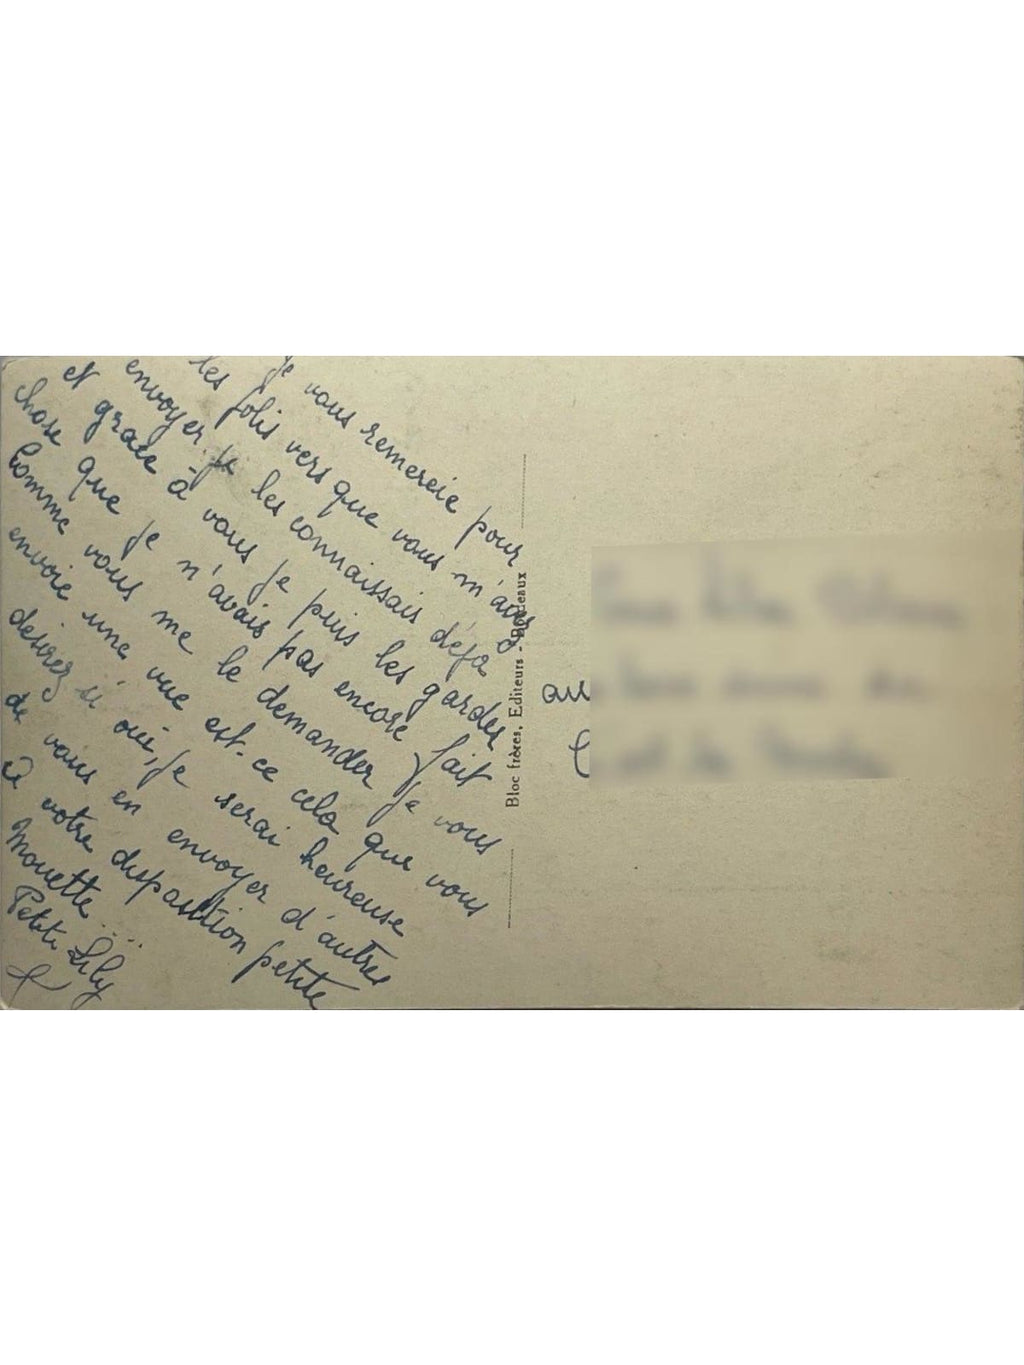 Je vous remercie pour
les jolis vers que vous m'avez
envoyer. Je les connaissais déjà
et grace à vous je puis les garder
chose que je n'avais pas encore fait
Comme vous me le demander je vous
envoie une vue est-ce cela que vous
désirez si oui, je serai heureuse
de vous en envoyer d'autres
à votre disposition petite
Mouette....
Petite Lily
Bloc frères, Editeurs - Bordeaux
au